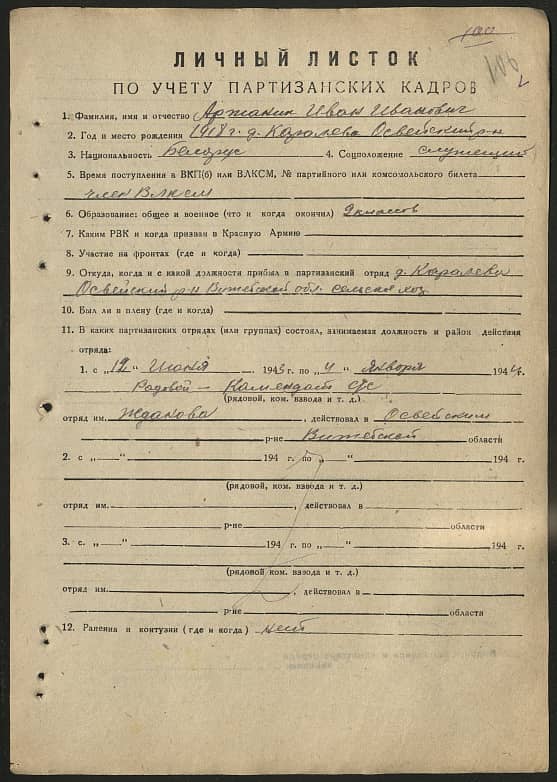 100
106
ЛИЧНЫЙ ЛИСТОК
ПО УЧЕТУ ПАРТИЗАНСКИХ КАДРОВ
1. Фамилия, имя и отчество Аржанин Иван Иванович
2. Год и место рождения 1918 г. д. Каралева Освейский р-н
3. Национальность Белорус 4. Соцположение служещий
5. Время поступления в ВКП(б) или ВЛКСМ, № партийного или комсомольского билета
член ВЛКСМ
6. Образование: общее и военное (что и когда окончил) классов
7. Каким РВК и когда призван в Красную Армию
8. Участие на фронтах (где и когда)
9. Откуда, когда и с какой должности прибыл в партизанский отряд д. Каралева
Освейский р-н Витебской обл. сельское хоз.
10. Был ли в плену (где и когда)
11. В каких партизанских отрядах (или группах) состоял, занимаемая должность и район действия
отряда:
1. с „12" Июня 1943 г. по „4" Января 1944 г.
Радовой — Камендат
(рядовой, ком. взвода и т. д.)
отряд им. Жданова, действовал в Освейским
р-не Витебской области
2. с „—" 194 г. по „—" 194 г.
(рядовой, ком. взвода и т. д.)
отряд им. , действовал в
р-не области
3. с „—" 194 г. по „—" 194 г.
(рядовой ком. взвода и т. д.)
отряд им. , действовал в
р-не области
12. Ранения и контузии (где и когда) нет